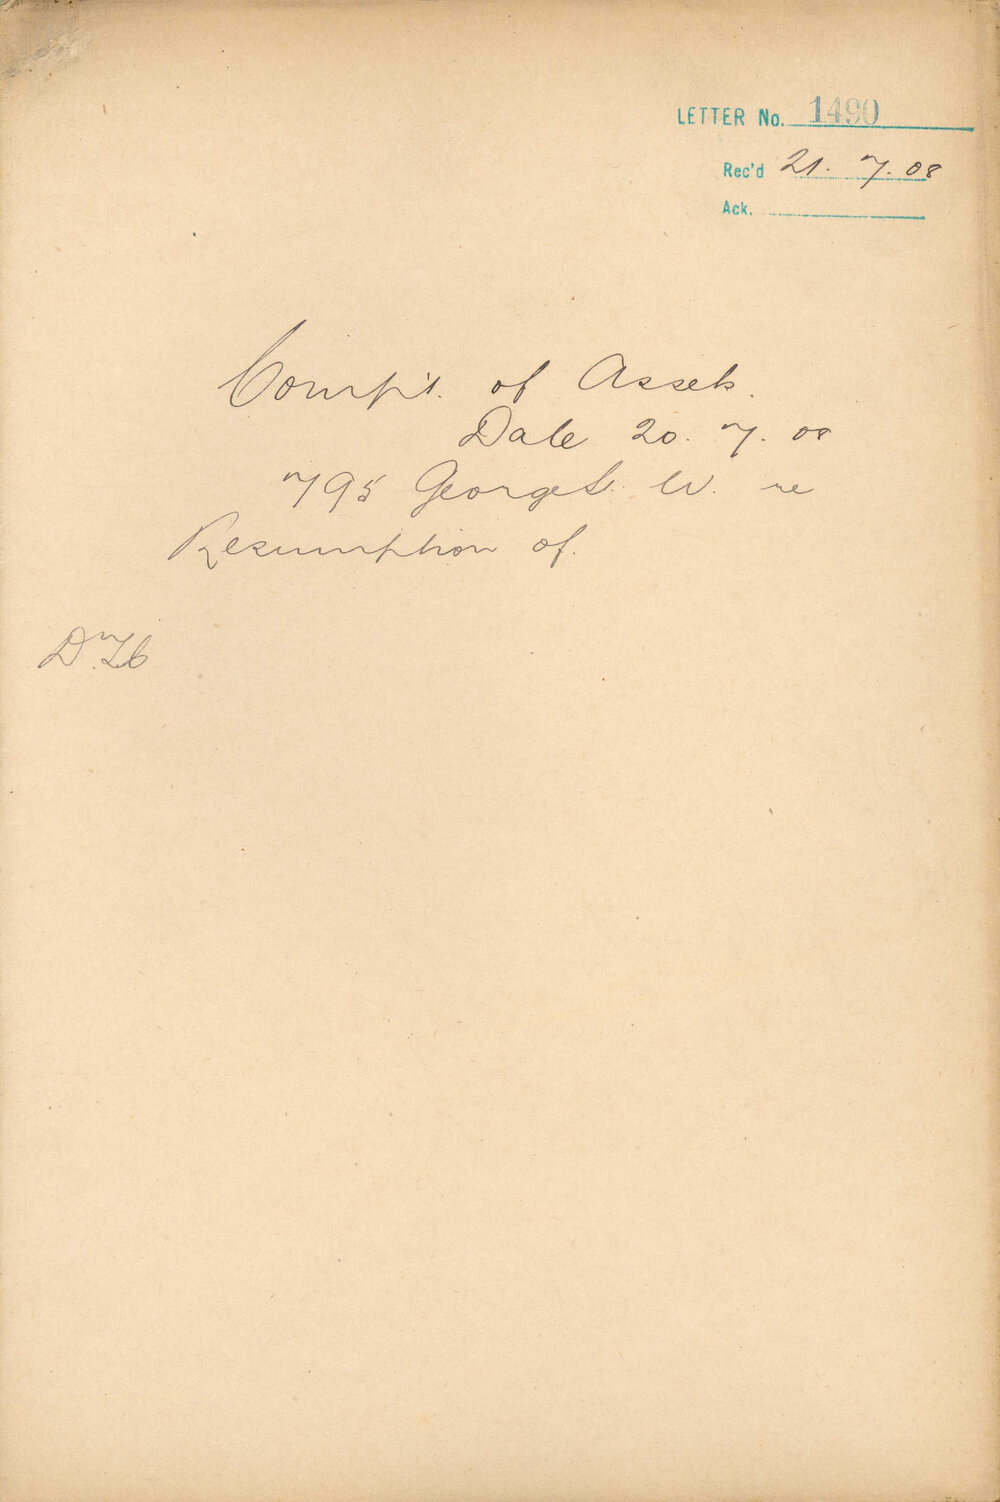 LETTER No. 1490
Rec'd 21. 7. 08
Ack.
Compt. of Assets.
Date 20. 7. 08
795 George St. W. re
Resumption of.